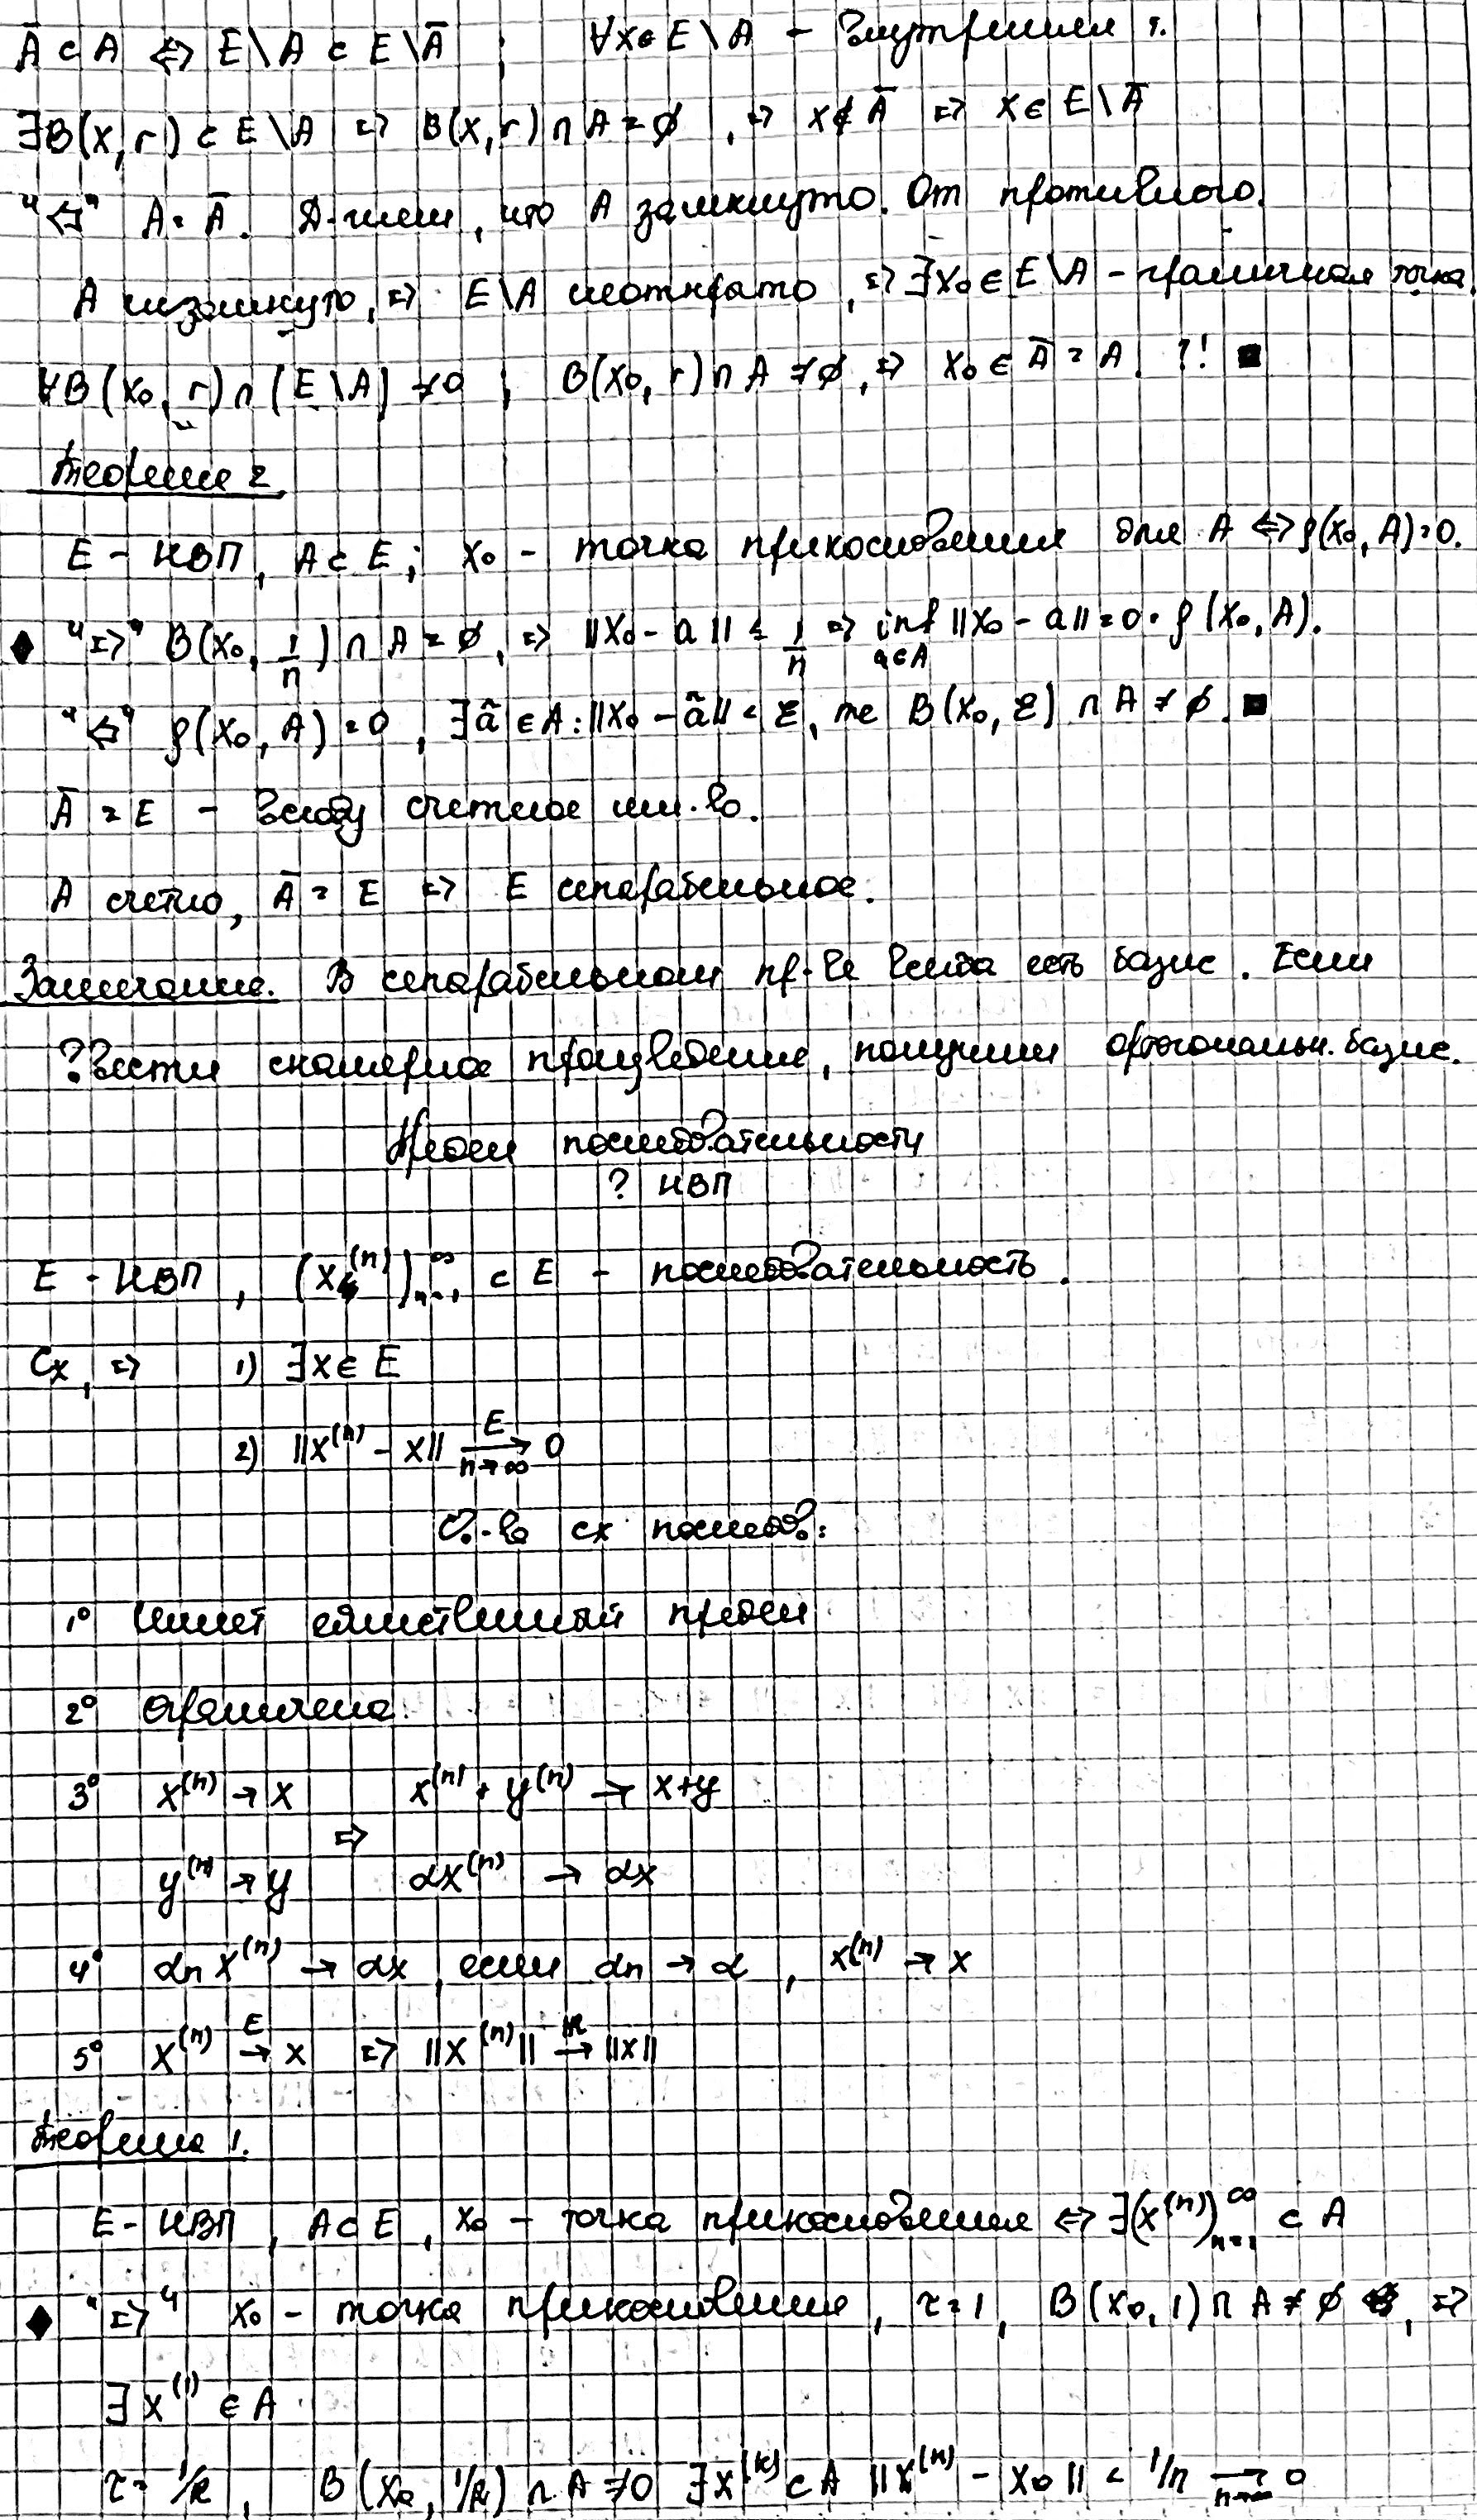 Ā ⊂ A ⇔ E\A ⊂ E\Ā ; ∀x∈E\A – внутренняя т.
∃B(x,r) ⊂ E\A ⇒ B(x,r)∩A=∅, ⇒ x∉Ā ⇒ x∈E\Ā
"⇐" A=Ā. Д-жем, что A замкнуто. От противного.
A незамкнуто, ⇒ E\A неоткрыто, ⇒ ∃x₀∈E\A – граничная точка.
∀B(x₀,r)∩(E\A)≠0 ; B(x₀,r)∩A≠∅, ⇒ x₀∈Ā=A ?! ■
Теорема 2
E – НВП, A⊂E; x₀ – точка прикосновения для A ⇔ ρ(x₀,A)=0.
◆ "⇒" B(x₀, 1/n)∩A=∅, ⇒ ||x₀-a|| ≤ 1/n ⇒ inf a∈A ||x₀-a||=0=ρ(x₀,A).
"⇐" ρ(x₀,A)=0, ∃â∈A: ||x₀-â||<ε, те B(x₀,ε)∩A≠∅. ■
Ā=E – всюду счетное мн-во.
A счетно, Ā=E ⇒ E сепарабельное.
Замечание. В сепарабельном пр-ве всегда есть базис. Если
?ввести скалярное произведение, получим ортогональн. базис.
Предел последовательности
? НВП
E – НВП, (x⁽ⁿ⁾)ₙ₌₁^∞ ⊂ E – последовательность.
Сх, ⇒ 1) ∃x∈E
2) ||x⁽ⁿ⁾ - x|| →(E, n→∞) 0
Св-ва сх послед.:
1° Имеет единственный предел
2° Ограничена.
3° x⁽ⁿ⁾ → x x⁽ⁿ⁾ + y⁽ⁿ⁾ → x+y
⇒
y⁽ⁿ⁾ → y αx⁽ⁿ⁾ → αx
4° αₙx⁽ⁿ⁾ → αx, если αₙ → α, x⁽ⁿ⁾ → x
5° x⁽ⁿ⁾ →(E) x ⇒ ||x⁽ⁿ⁾|| →(ℝ) ||x||
Теорема 1.
E – НВП, A⊂E, x₀ – точка прикосновения ⇔ ∃(x⁽ⁿ⁾)ₙ₌₁^∞ ⊂ A
◆ "⇒" x₀ – точка прикосновения, r=1, B(x₀,1)∩A≠∅, ⇒
∃x⁽¹⁾∈A
r=1/k, B(x₀,1/k)∩A≠0 ∃x⁽ᵏ⁾⊂A ||x⁽ⁿ⁾-x₀|| < 1/n →(n→∞) 0